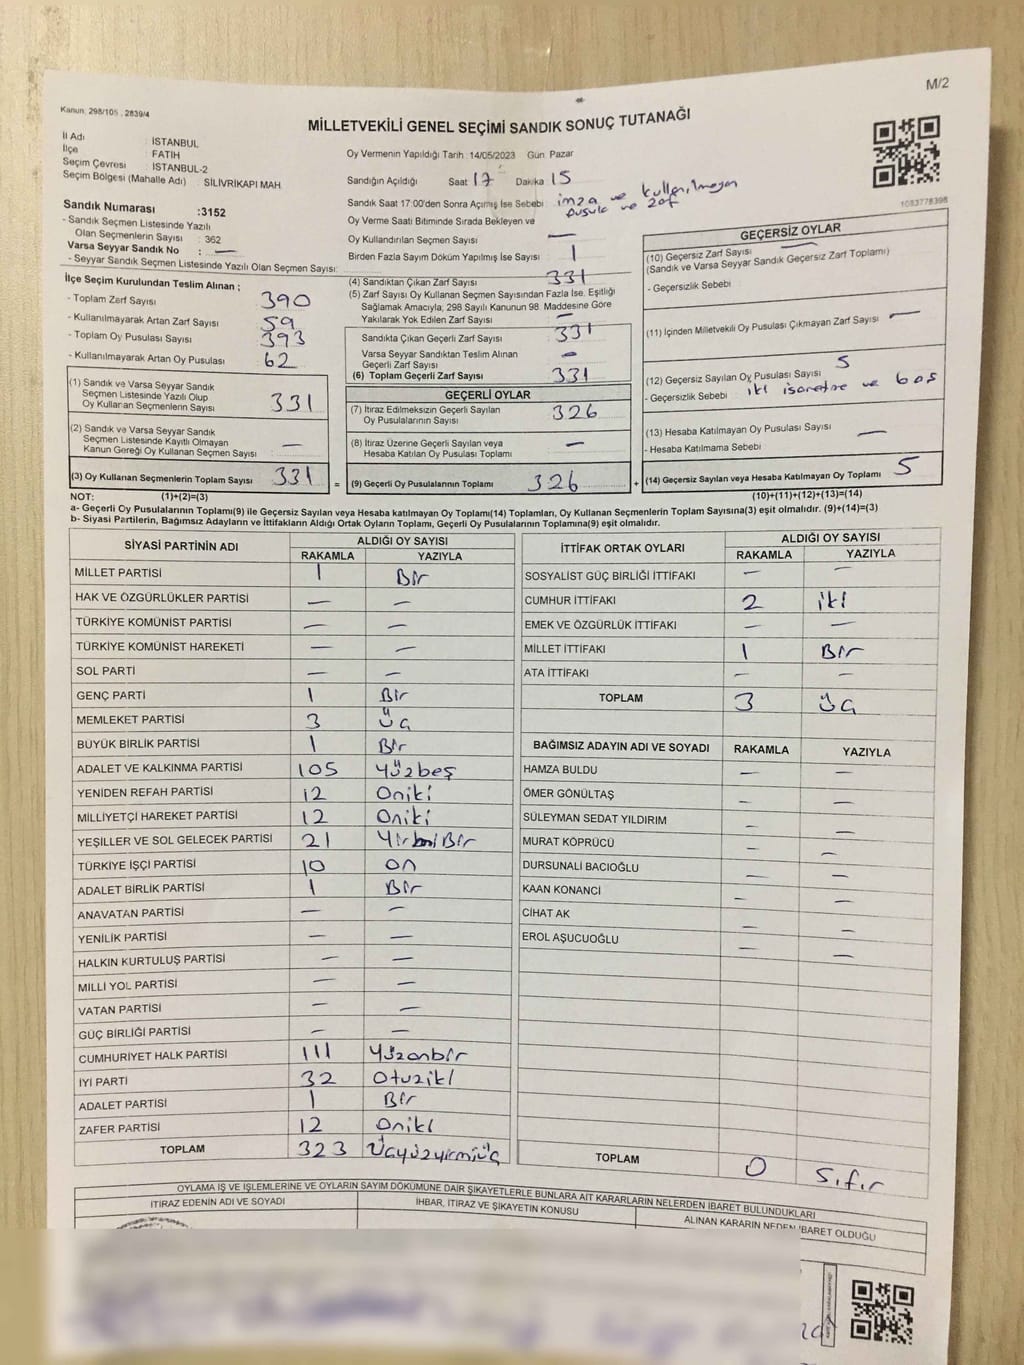 M/2
Kanun: 298/105 , 2839/4
MİLLETVEKİLİ GENEL SEÇİMİ SANDIK SONUÇ TUTANAĞI
İl Adı : İSTANBUL
İlçe : FATİH
Seçim Çevresi : İSTANBUL-2
Seçim Bölgesi (Mahalle Adı) : SİLİVRİKAPI MAH
Sandık Numarası :3152
- Sandık Seçmen Listesinde Yazılı
Olan Seçmenlerin Sayısı : 362
Varsa Seyyar Sandık No : —
- Seyyar Sandık Seçmen Listesinde Yazılı Olan Seçmen Sayısı:
Oy Vermenin Yapıldığı Tarih :14/05/2023 Gün: Pazar
Sandığın Açıldığı Saat 17 Dakika 15
Sandık Saat 17:00'den Sonra Açılmış İse Sebebi : imza ve kullanılmayan
pusula ve zarf
Oy Verme Saati Bitiminde Sırada Bekleyen ve
Oy Kullandırılan Seçmen Sayısı —
Birden Fazla Sayım Döküm Yapılmış İse Sayısı 1
1083778398
İlçe Seçim Kurulundan Teslim Alınan ;
- Toplam Zarf Sayısı 390
- Kullanılmayarak Artan Zarf Sayısı 59
- Toplam Oy Pusulası Sayısı 393
- Kullanılmayarak Artan Oy Pusulası 62
(1) Sandık ve Varsa Seyyar Sandık
Seçmen Listesinde Yazılı Olup
Oy Kullanan Seçmenlerin Sayısı 331
(2) Sandık ve Varsa Seyyar Sandık
Seçmen Listesinde Kayıtlı Olmayan
Kanun Gereği Oy Kullanan Seçmen Sayısı —
(3) Oy Kullanan Seçmenlerin Toplam Sayısı 331 =
(4) Sandıktan Çıkan Zarf Sayısı 331
(5) Zarf Sayısı Oy Kullanan Seçmen Sayısından Fazla İse, Eşitliği
Sağlamak Amacıyla; 298 Sayılı Kanunun 98. Maddesine Göre
Yakılarak Yok Edilen Zarf Sayısı —
Sandıkta Çıkan Geçerli Zarf Sayısı 331
Varsa Seyyar Sandıktan Teslim Alınan
Geçerli Zarf Sayısı —
(6) Toplam Geçerli Zarf Sayısı 331
GEÇERLİ OYLAR
(7) İtiraz Edilmeksizin Geçerli Sayılan
Oy Pusulalarının Sayısı 326
(8) İtiraz Üzerine Geçerli Sayılan veya
Hesaba Katılan Oy Pusulası Toplamı —
(9) Geçerli Oy Pusulalarının Toplamı 326 +
GEÇERSİZ OYLAR
(10) Geçersiz Zarf Sayısı —
(Sandık ve Varsa Seyyar Sandık Geçersiz Zarf Toplamı)
- Geçersizlik Sebebi
(11) İçinden Milletvekili Oy Pusulası Çıkmayan Zarf Sayısı —
(12) Geçersiz Sayılan Oy Pusulası Sayısı 5
- Geçersizlik Sebebi : iki işaretine ve boş
(13) Hesaba Katılmayan Oy Pusulası Sayısı —
- Hesaba Katılmama Sebebi
(14) Geçersiz Sayılan veya Hesaba Katılmayan Oy Toplamı 5
NOT: (1)+(2)=(3) (10)+(11)+(12)+(13)=(14)
a- Geçerli Oy Pusulalarının Toplamı(9) ile Geçersiz Sayılan veya Hesaba katılmayan Oy Toplamı(14) Toplamları, Oy Kullanan Seçmenlerin Toplam Sayısına(3) eşit olmalıdır. (9)+(14)=(3)
b- Siyasi Partilerin, Bağımsız Adayların ve İttifakların Aldığı Ortak Oyların Toplamı, Geçerli Oy Pusulalarının Toplamına(9) eşit olmalıdır.
SİYASİ PARTİNİN ADI ALDIĞI OY SAYISI
RAKAMLA YAZIYLA
MİLLET PARTİSİ 1 Bir
HAK VE ÖZGÜRLÜKLER PARTİSİ — —
TÜRKİYE KOMÜNİST PARTİSİ — —
TÜRKİYE KOMÜNİST HAREKETİ — —
SOL PARTİ — —
GENÇ PARTİ 1 Bir
MEMLEKET PARTİSİ 3 üç
BÜYÜK BİRLİK PARTİSİ 1 Bir
ADALET VE KALKINMA PARTİSİ 105 yüzbeş
YENİDEN REFAH PARTİSİ 12 Oniki
MİLLİYETÇİ HAREKET PARTİSİ 12 Oniki
YEŞİLLER VE SOL GELECEK PARTİSİ 21 YirmiBir
TÜRKİYE İŞÇİ PARTİSİ 10 on
ADALET BİRLİK PARTİSİ 1 Bir
ANAVATAN PARTİSİ — —
YENİLİK PARTİSİ — —
HALKIN KURTULUŞ PARTİSİ — —
MİLLİ YOL PARTİSİ — —
VATAN PARTİSİ — —
GÜÇ BİRLİĞİ PARTİSİ — —
CUMHURİYET HALK PARTİSİ 111 Yüzonbir
İYİ PARTİ 32 Otuziki
ADALET PARTİSİ 1 Bir
ZAFER PARTİSİ 12 Oniki
TOPLAM 323 Üçyüzyirmiüç
İTTİFAK ORTAK OYLARI ALDIĞI OY SAYISI
RAKAMLA YAZIYLA
SOSYALİST GÜÇ BİRLİĞİ İTTİFAKI — —
CUMHUR İTTİFAKI 2 iki
EMEK VE ÖZGÜRLÜK İTTİFAKI — —
MİLLET İTTİFAKI 1 Bir
ATA İTTİFAKI — —
TOPLAM 3 üç
BAĞIMSIZ ADAYIN ADI VE SOYADI RAKAMLA YAZIYLA
HAMZA BULDU — —
ÖMER GÖNÜLTAŞ — —
SÜLEYMAN SEDAT YILDIRIM — —
MURAT KÖPRÜCÜ — —
DURSUNALİ BACIOĞLU — —
KAAN KONANCİ — —
CİHAT AK — —
EROL AŞUCUOĞLU — —
TOPLAM 0 Sıfır
OYLAMA İŞ VE İŞLEMLERİNE VE OYLARIN SAYIM DÖKÜMÜNE DAİR ŞİKAYETLERLE BUNLARA AİT KARARLARIN NELERDEN İBARET BULUNDUKLARI
İTİRAZ EDENİN ADI VE SOYADI İHBAR, İTİRAZ VE ŞİKAYETİN KONUSU ALINAN KARARIN NEDEN İBARET OLDUĞU